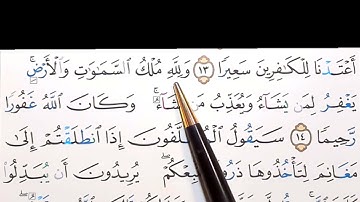 أَعْتَدْنَا لِلْكَٰفِرِينَ سَعِيرًا ١٣ وَلِلَّهِ مُلْكُ السَّمَٰوَٰتِ وَالْأَرْضِ ۚ
يَغْفِرُ لِمَن يَشَآءُ وَيُعَذِّبُ مَن يَشَآءُ ۚ وَكَانَ اللَّهُ غَفُورًا
رَّحِيمًا ١٤ سَيَقُولُ الْمُخَلَّفُونَ إِذَا انطَلَقْتُمْ إِلَىٰ
مَغَانِمَ لِتَأْخُذُوهَا ذَرُونَا نَتَّبِعْكُمْ ۖ يُرِيدُونَ أَن يُبَدِّلُوا